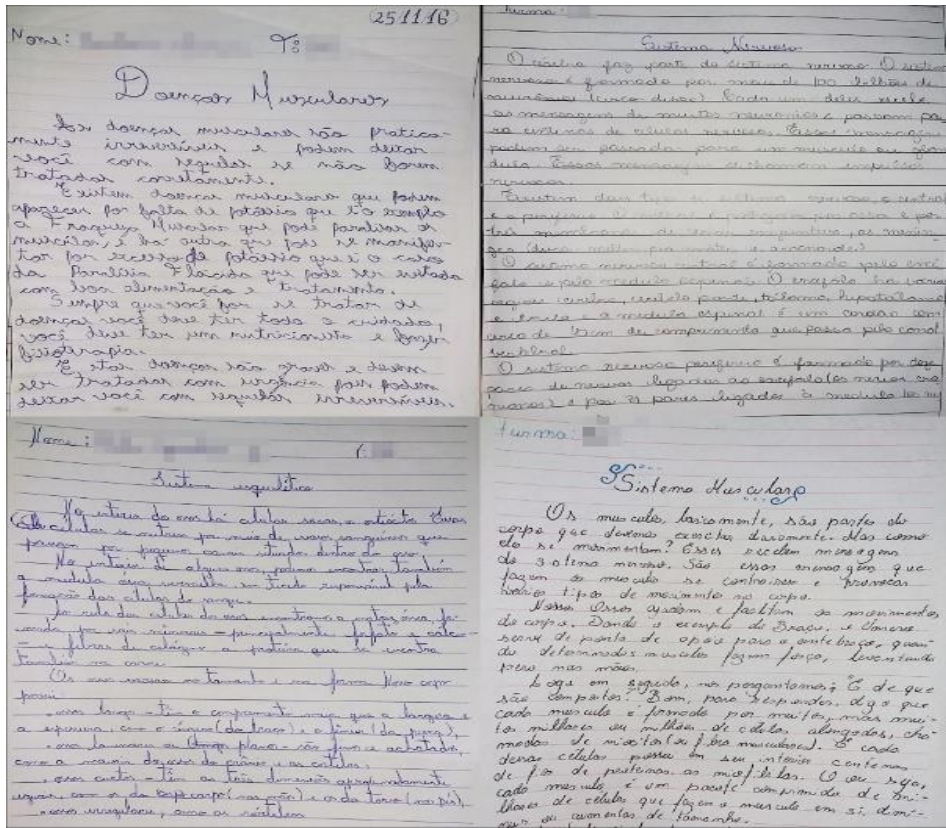 25/11/16
Nome: T:
Doenças Musculares
As doenças musculares são pratica-
mente irreversíveis e podem deixar
você com sequelas se não forem
tratadas corretamente.
Existem doenças musculares que podem
aparecer por falta de potássio que é o exemplo
a Fraqueza Muscular que pode paralisar os
músculos, e há outra que pode se manifes-
tar por excesso de potássio que é o caso
da Paralisia Flácida que pode ser evitada
com boa alimentação e tratamento.
Sempre que você for se tratar de
doenças você deve ter todo o cuidado,
você deve ter um nutricionista e fazer
fisioterapia.
E estas doenças são graves e devem
ser tratadas com urgência pois podem
deixar você com sequelas irreversíveis.
Turma:
Sistema Nervoso
O cérebro faz parte do sistema nervoso. O sistema
nervoso é formado por mais de 100 bilhões de
neurônios Cada um deles recebe
as mensagens de muitos neurônios e passam pa-
ra centenas de células nervosas. Essas mensagens
podem ser passadas para um músculo ou glân-
dula. Essas mensagens se chamam impulsos
nervosos.
Existem dois tipos de sistema nervoso, o central
e o periférico. O central é protegido por
três membranas de tecido conjuntivo, as menin-
ges
O sistema nervoso central é formado pelo encé-
falo e pela medula espinal. O encéfalo há várias
regiões
e a medula espinal é um cordão com
cerca de de comprimento que passa pelo canal
vertebral.
O sistema nervoso periférico é formado por doze
pares de nervos ligados ao encéfalo (os nervos cra-
nianos) e por 31 pares ligados à medula
Nome: T:
Sistema esquelético
No interior do osso há células ósseas, os Essas
células se nutrem por meio de vasos sanguíneos que
passam por pequenos canais dentro do osso.
No interior de alguns ossos, podemos encontrar também
a medula óssea vermelha, um tecido responsável pela
formação das células do sangue.
Ao redor das células do osso encontra-se a matriz óssea, for-
mada por sais minerais - principalmente fosfato e cálcio
e fibras de colágeno a proteína que se encontra
também na carne.
Os ossos variam no tamanho e na forma. Nosso corpo
possui:
. ossos longos - têm o comprimento maior que a largura e
a espessura, como o úmero (do braço) e o fêmur (da perna),
. ossos laminares ou planos - são finos e achatados,
como a maioria dos ossos do crânio e as costelas.
. ossos curtos - têm as três dimensões aproximadamente
iguais, como os do carpo (nas mãos) e os do tarso (nos pés),
. ossos irregulares, como as vértebras
turma:
Sistema Muscular
Os musculos, basicamente, são partes do
corpo que devemos exercitar diariamente. Mas como
ele se movimentam? Esses recebem mensagens
do sistema nervoso. São essas mensagens que
fazem os musculos se contraírem e provocar
vários tipos de movimentos no corpo.
Nossos Ossos ajudam e facilitam os movimentos
do corpo. Dando o exemplo do Braço, o Úmero
serve de ponto de apoio para o antebraço, quan-
do determinados musculos fazem força, levantando
peso nas mãos.
Logo em seguida, nos perguntamos: E de que
são compostos? Bom, para responder, digo que
cada musculo é formado por muitos, mas mui-
tos milhares ou milhões de células alongadas, cha-
madas de miócitos (ou fibras musculares). E cada
dessas células possui em seu interior centenas
de fios de proteínas, as miofibrilas. O ou seja,
cada musculo é um pacote comprimido de mi-
lhares de células que fazem o musculo em si, dimi-
nuir ou aumentar de tamanho.